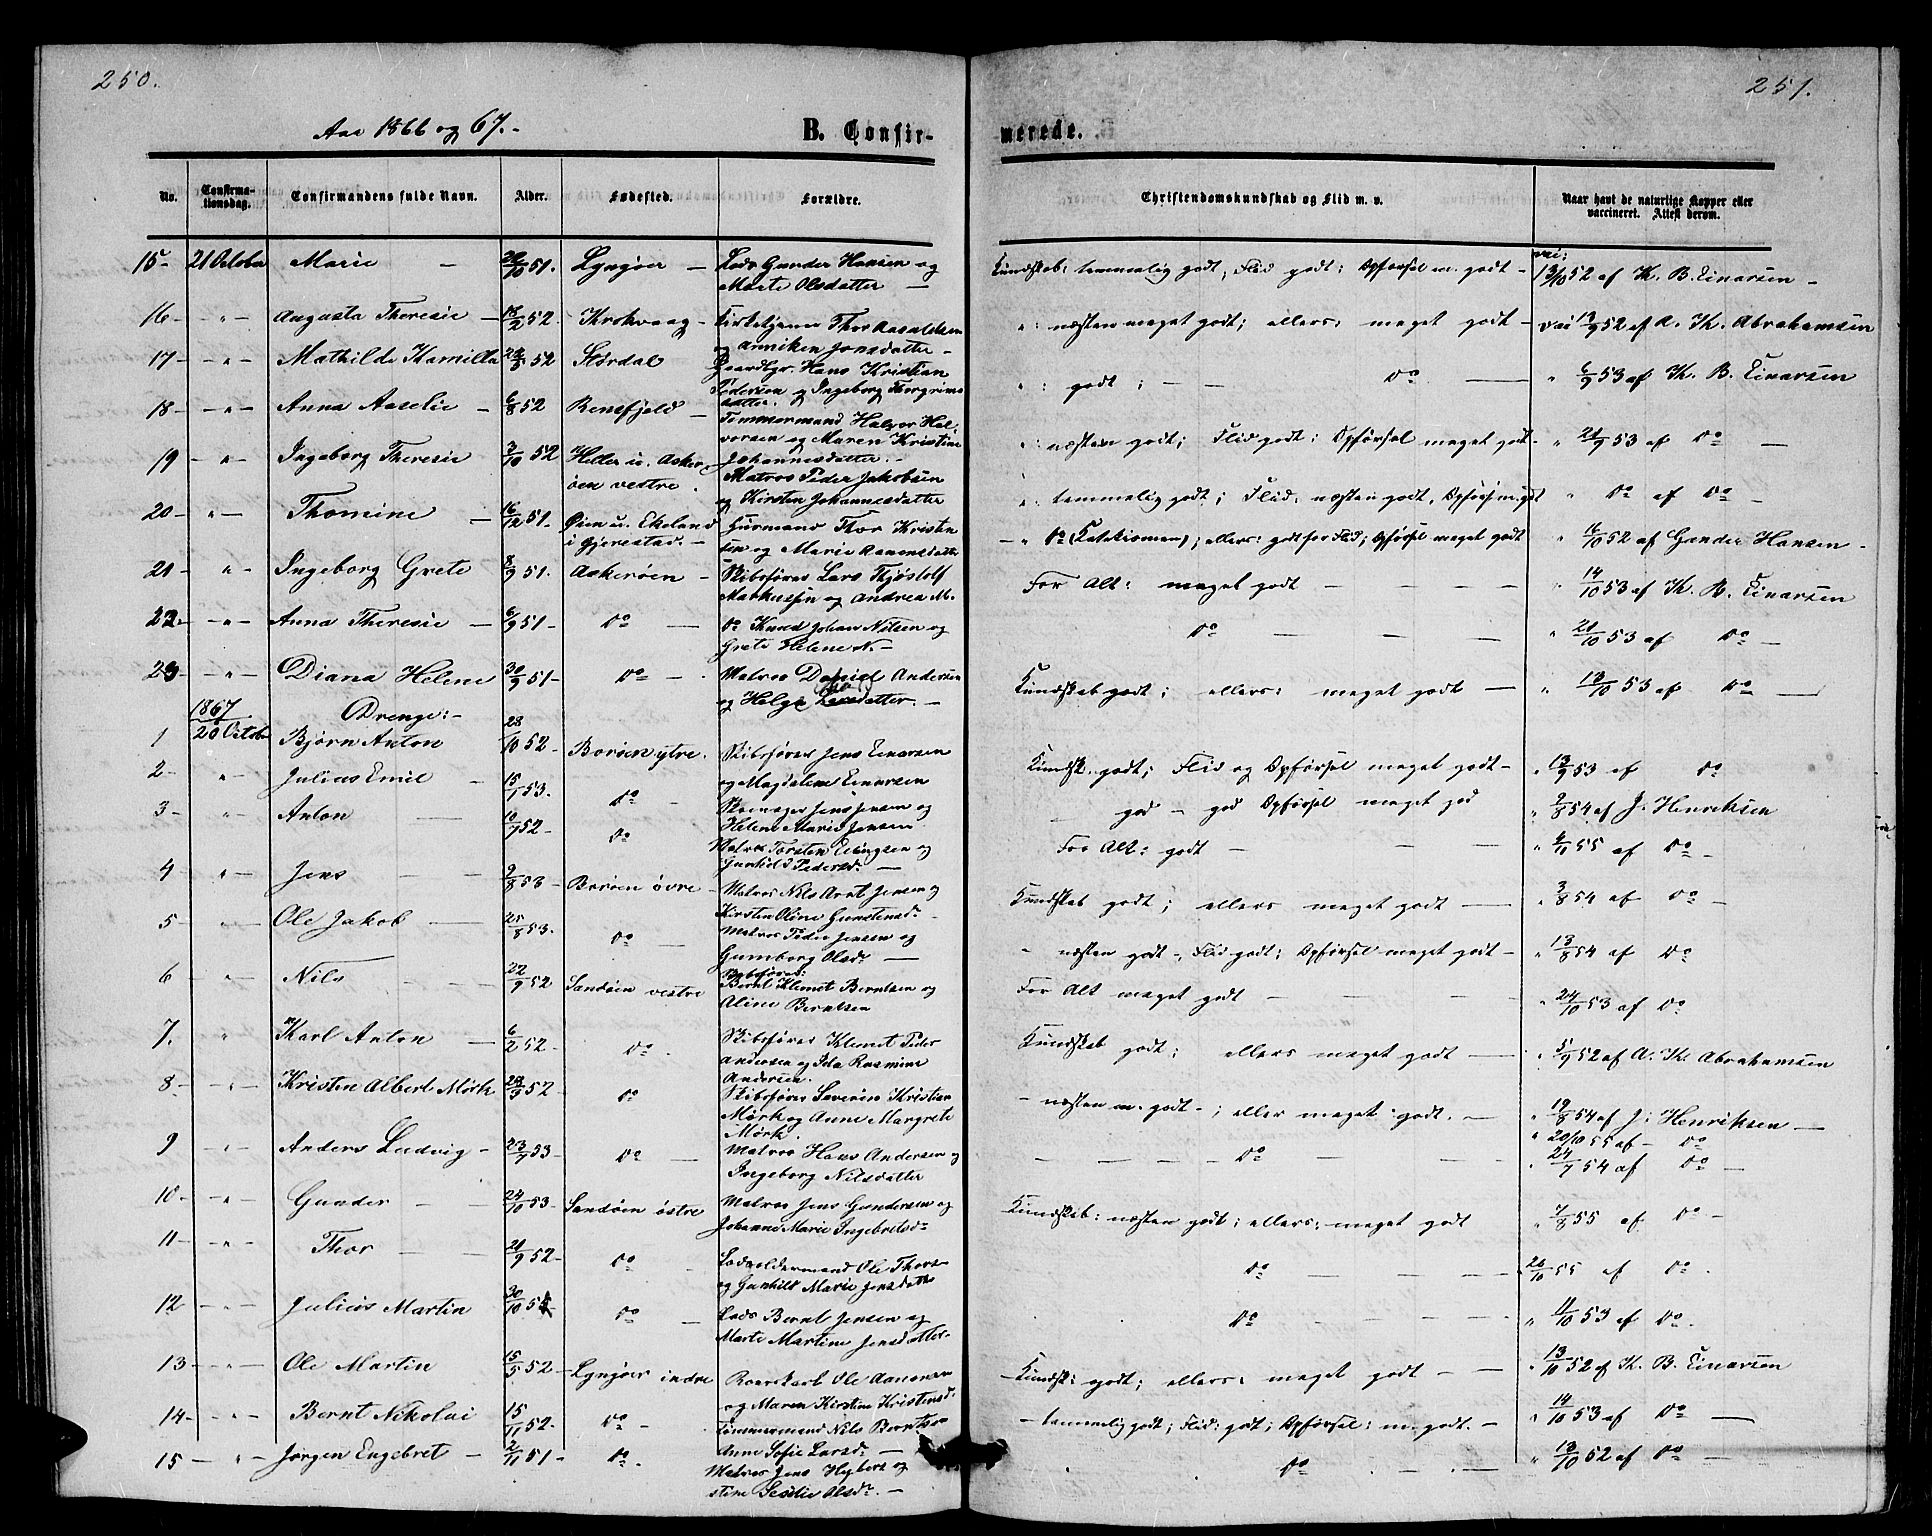 250.
251.
Aar 1866 og 67.-
B. Confir-
merede.
No.
Confirma-
tionsdag.
Confirmandens fulde Navn.
Alder.
Fødested.
Forældre.
Christendomskundskab og Flid m. v.
Naar havt de naturlige Kopper eller
vaccineret. Attest derom.
15- 21 October Marie - 51. Lyngøer - Lods Gunder Hansen og
Marte Olsdatter -
Kundskab: temmelig godt; Flid godt; Opførsel m. godt - 13/10 52 af K. B. Einarsen -
16- -"- Augusta Theresie - 18/2 52. Krokvaag - Kirketjener Thor Aasaldsen
og Anniken Jonsdatter -
": næsten meget godt; ellers: meget godt - 52 af A. K. Abrahamsen
17- -"- Mathilde Kamilla 52 Størdal Gaardbgr. Hans Kristian
Pedersen og Ingeborg Thorgrims
datter.
": godt ; - - Do - " 6/9 53 af K. B. Einarsen
18- -"- Anna Aaselie - 6/8 52 Rensfjeld - Tømmermand Halvor Hal-
vorsen og Maren Kristine
Johannesdatter. -
": næsten godt; Flid godt; Opførsel meget godt - " 21/9 53 af Do -
19 -"- Ingeborg Theresie 3/10 52 Heller u. Asker-
øen vestre. Matros Peder Jakobsen
og Kirsten Johannesdatter
": temmelig godt; Flid: næsten godt, Opførs. m. godt " Do af Do -
20- -"- Thomine - 16/12 51. Øien u. Ekeland
i Gjerestad. - Gurmand Thor Kristen
sen og Marie Aanonsdatter
- " Do (Katekismen); ellers: godt for Flid; Opførsel meget godt " 16/10 52 af Gunder Hansen -
21- -"- Ingeborg Grete 8/9 51. Askerøen - Skibsfører Lars Thjøstolf
Markussen og Andrea M.
For Alt: meget godt - - - " 14/10 53 af K. B. Einarsen
22- -"- Anna Theresie - 6/9 51- Do - Do Knud Johan Nilsen og
Grete Helene N. -
Do - - - " 21/10 53 af Do -
23- -"- Diana Helene 30/9 51- Do - Matros Daniel Andersen
og Helge datter. -
Kundskab godt; ellers: meget godt - " 13/10 53 af Do -
1867 Drenge:-
1 20 October Bjørn Anton 28/10 52 Borøen ytre. Skibsfører Jens Einarsen
og Magdalene Einarsen
Kundsk. godt; Flid og Opførsel meget godt - " 13/9 53 af Do
2- " Julius Emil - 15/1 53. Do - Jens Jensen og
Helene Marie Jensen
- god - god Opførsel meget god " 9/8 54 af J. Henriksen
3- -"- Anton - 10/7 52- Do Matros Torsten Ellingsen og
Gunhild Pedersd. -
For Alt: godt - - - " 55 af Do -
4 "- Jens - - 9/8 53- Borøen øvre - Matros Nils Arnt Jensen og
Kirsten Oline Gunstensd.
Kundskab godt; ellers meget godt - " 3/8 54 af Do -
5 "- Ole Jakob - 25/8 53. Do - Matros Peder Jensen og
Gumborg Olsd. -
- næsten godt -, Flid godt; Opførsel meget godt - " 13/8 54 af Do
6 "- Nils - - 22/9 52 Sandøen vestre Skibsfører:
Bernt Klemet Berntsen og
Aline Berntsen
For Alt meget godt - - - " 24/10 53 af Do
7. " Karl Anton - 6/2 52- Do - Skibsfører Klemet Peder
Andersen og Ida Rasmine
Andersen.
Kundskab godt; ellers meget godt - " 5/9 52 af A. K. Abrahamsen
8- -"- Kristen Albert Mørk 52- Do Skibsfører Severin Kristian
Mørk og Anne Margrete
Mørk.
- næsten m. godt -; eller meget godt. - " 19/8 54 af J. Henriksen -
9 -"- Anders Ludvig - 23/7 53- Do - Matros Hans Andersen og
Ingeborg Nilsdatter
- - - Do - - - " 20/10 55 af - Do
" 24/7 54 af Do -
10- -"- Gunder - - 24/10 53- Sandøen østre Matros Jens Gundersen og
Johanne Marie Ingebretsd.
Kundskab: næsten godt; ellers: meget godt " 55 af Do -
11- -"- Thor - - 21/9 52- Do - Ole Thors-
og Gunhild Marie Jensdatter
Do - - - 55 af Do.
12 -"- Julius Martin 30/10 Do - Lods Bernt Jensen og
Marte Martine Jensdatter.
Do - - - " 11/10 53 af Do.
13 -"- Ole Martin 15/5 52- Lyngøer indre Ole Aanonsen
og Maren Kirstine Kristensd.
- Kundsk: godt; ellers: meget godt - - " 13/10 52 af K. B. Einarsen
14- -"- Bernt Nikolai 15/11 52. Do - Tømmermand Nils Berntsen
Anne Sofie Larsd. -
- temmelig godt; Flid: godt; Opførsel: m. godt. - " 14/10 53 af Do -
15 -"- Jørgen Engebret - 2/11 51- Do. Matros Jens
Olsd. -
Do - - " 13/10 52 af Do -